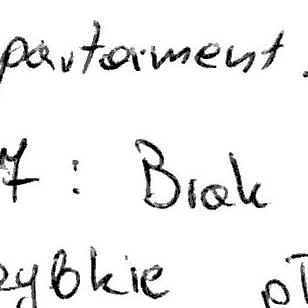 partament.
7 : Brak
zybkie